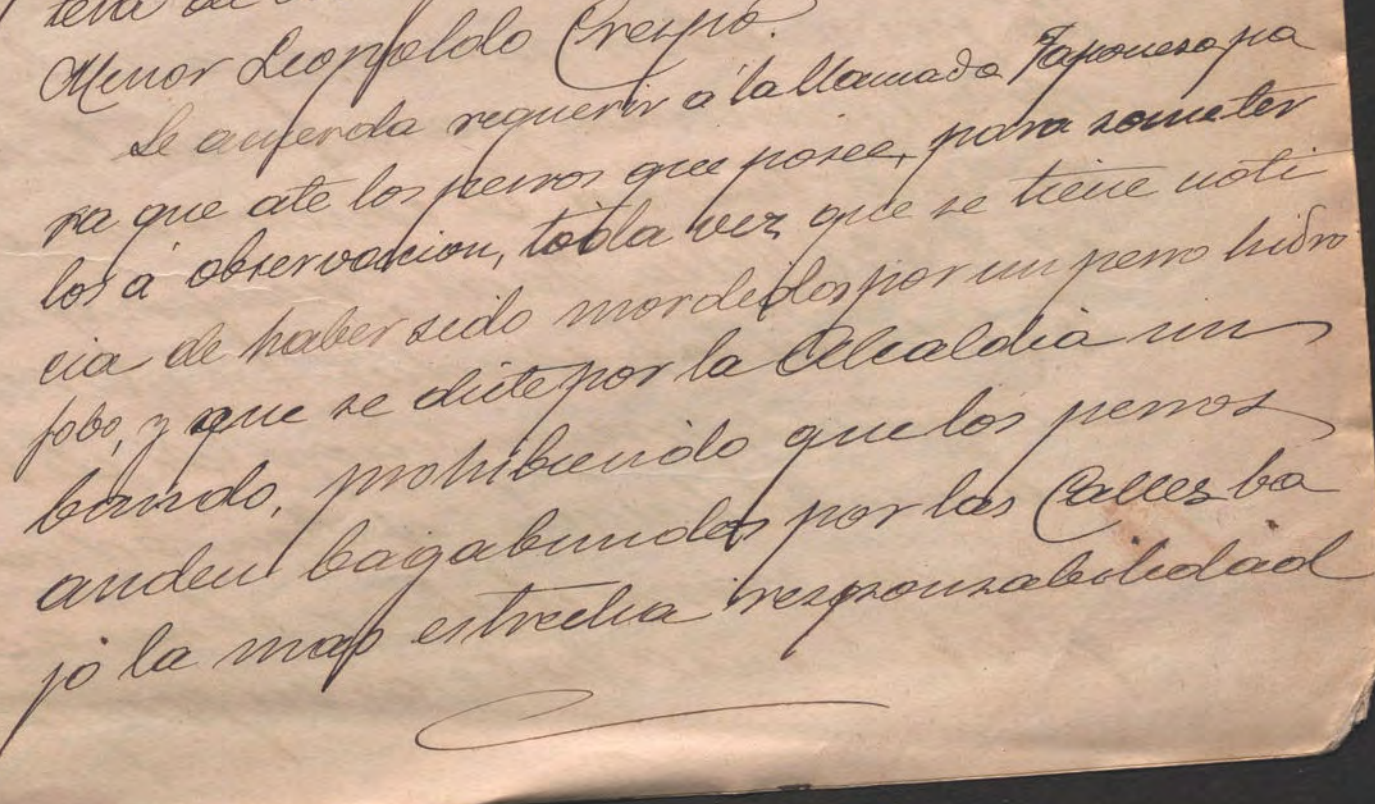 Menor Leopoldo Crespo.
Se acuerda requerir á la llamada Japonesa pa
ra que ate los perros que posee, para someter
los á observacion, toda vez que se tiene noti
cia de haber sido mordidos por un perro hidro
fobo, y que se dicte por la Alcaldia un
bando, prohibiendo que los perros
anden bagabundos por las Calles ba
jo la mas estrecha responsabilidad